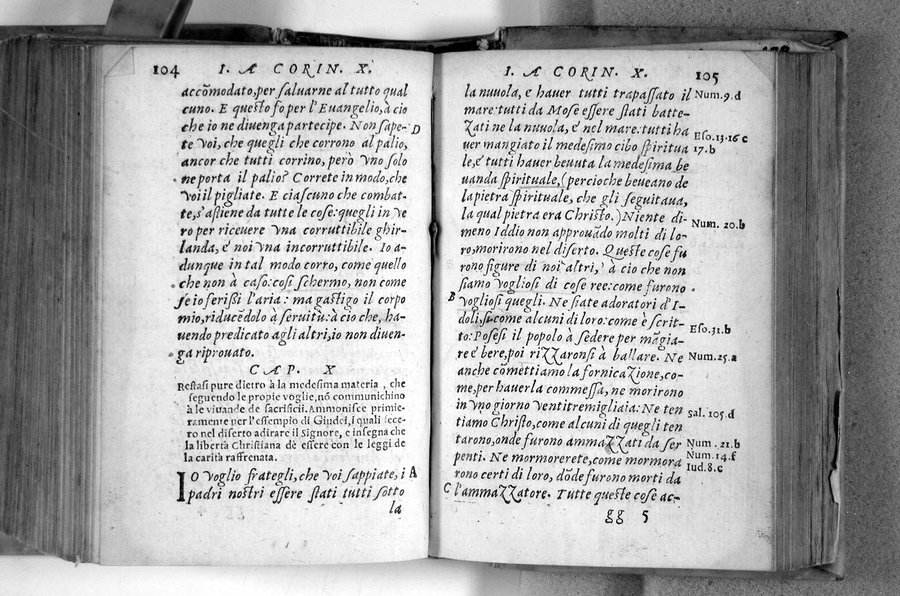 104 I. A CORIN. X.
accõmodato, per saluarne al tutto qual
cuno. E questo fo per l'Euangelio, à cio
che io ne diuenga partecipe. Non sape- D
te voi, che quegli che corrono al palio,
ancor che tutti corrino, però vno solo
ne porta il palio? Correte in modo, che
voi il pigliate. E ciascuno che combat-
te, s'astiene da tutte le cose: quegli in ve
ro per riceuere vna corruttibile ghir-
landa, è noi vna incorruttibile. Io a-
dunque in tal modo corro, come quello
che non à caso: cosi schermo, non come
se io ferißi l'aria: ma gastigo il corpo
mio, riducẽdolo à seruitù: à cio che, ha-
uendo predicato agli altri, io non diuen-
ga riprouato.
CAP. X
Restasi pure dietro à la medesima materia, che
seguendo le propie voglie, nõ communichino
à le viuande de sacrificii. Ammonisce primie-
ramente per l'essempio di Giudei, i quali fece-
ro nel diserto adirare il Signore, e insegna che
la libertà Christiana dè essere con le leggi de
la carità raffrenata.
IO voglio frategli, che voi sappiate, i A
padri nostri essere stati tutti sotto
la
I. A CORIN. X. 105
la nuuola, e hauer tutti trapassato il Num. 9. d
mare: tutti da Mose essere stati batte-
zati ne la nuuola, è nel mare: tutti ha
uer mangiato il medesimo cibo spiritua Eso. 13. 16 c
le, è tutti hauer beuuta la medesima be 17. b
uanda spirituale, (percioche beueano de
la pietra spirituale, che gli seguitaua,
la qual pietra era Christo.) Niente di-
meno Iddio non approuãdo molti di lo- Num. 20. b
ro, morirono nel diserto. Queste cose fu
rono figure di noi altri, à cio che non
siamo vogliosi di cose ree: come furono
B vogliosi quegli. Ne siate adoratori d'I-
doli, si come alcuni di loro: come è scrit-
to: Posesi il popolo à sedere per mãgia- Eso. 31. b
re è bere, poi rizzaronsi à ballare. Ne Num. 25. a
anche cõmettiamo la fornicazione, co-
me, per hauerla commessa, ne morirono
in vno giorno ventitremigliaia: Ne ten
tiamo Christo, come alcuni di quegli ten Sal. 105. d
tarono, onde furono ammazzati da ser Num. 21. b
penti. Ne mormorerete, come mormora Num. 14. f
rono certi di loro, dõde furono morti da Iud. 8. c
C l'ammazzatore. Tutte queste cose ac-
gg 5